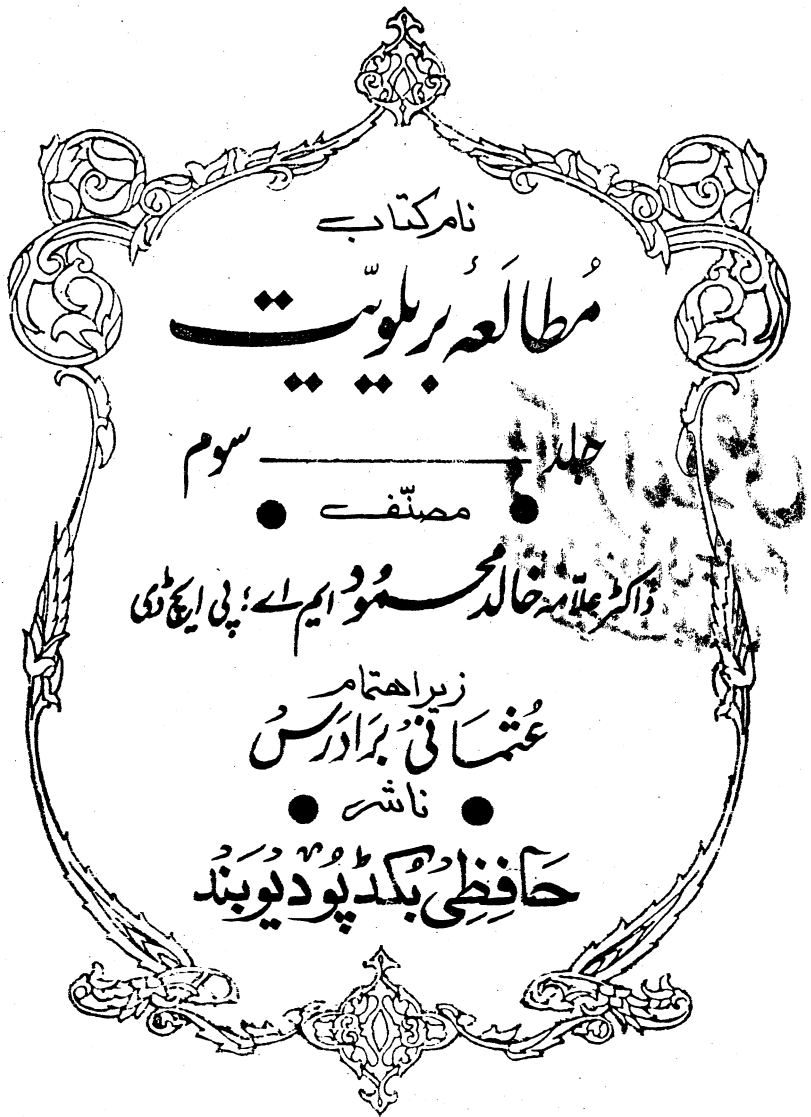 نام کتاب
مُطالَعۂ بریلویّت
جلد ــــــــــ سوم
مصنّف
ڈاکٹر علّامہ خالد محمُود ایم اے؛ پی ایچ ڈی
زیر اهتمام
عُثمانی بَرادَرس
ناشر
حَافِظِی بُکڈپُو دیُوبَند